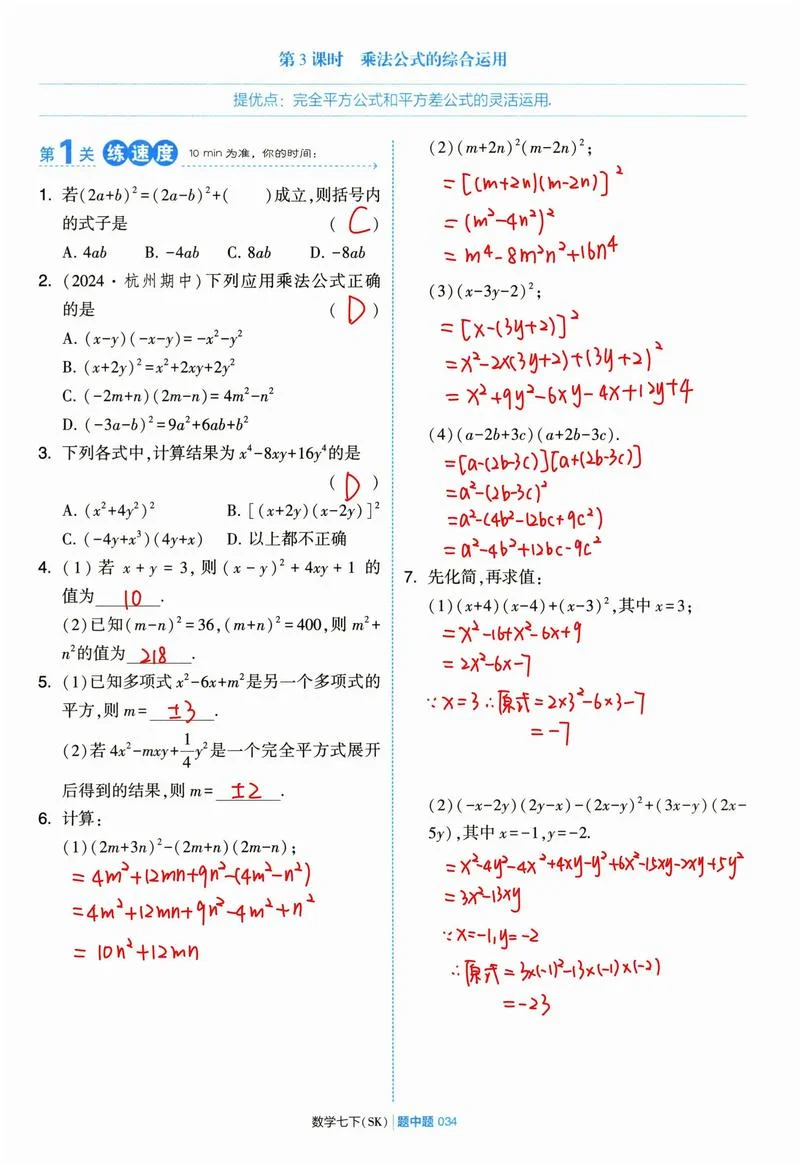 第3课时 乘法公式的综合运用
提优点：完全平方公式和平方差公式的灵活运用.
第1关 练速度 10 min为准，你的时间：
1. 若(2a+b)²=(2a-b)²+( )成立,则括号内
的式子是 ( C )
A. 4ab B. -4ab C. 8ab D. -8ab
2. (2024·杭州期中)下列应用乘法公式正确
的是 ( D )
A. (x-y)(-x-y)=-x²-y²
B. (x+2y)²=x²+2xy+2y²
C. (-2m+n)(2m-n)=4m²-n²
D. (-3a-b)²=9a²+6ab+b²
3. 下列各式中,计算结果为x⁴-8xy+16y⁴的是
( D )
A. (x²+4y²)² B. [(x+2y)(x-2y)]²
C. (-4y+x³)(4y+x) D. 以上都不正确
4. (1)若x+y=3,则(x-y)²+4xy+1的
值为 10 .
(2)已知(m-n)²=36,(m+n)²=400,则m²+
n²的值为 218 .
5. (1)已知多项式x²-6x+m²是另一个多项式的
平方,则m= ±3 .
(2)若4x²-mxy+1/4y²是一个完全平方式展开
后得到的结果,则m= ±2 .
6. 计算:
(1)(2m+3n)²-(2m+n)(2m-n);
=4m²+12mn+9n²-(4m²-n²)
=4m²+12mn+9n²-4m²+n²
=10n²+12mn
(2)(m+2n)²(m-2n)²;
=[(m+2n)(m-2n)]²
=(m²-4n²)²
=m⁴-8m²n²+16n⁴
(3)(x-3y-2)²;
=[x-(3y+2)]²
=x²-2x(3y+2)+(3y+2)²
=x²+9y²-6xy-4x+12y+4
(4)(a-2b+3c)(a+2b-3c).
=[a-(2b-3c)][a+(2b-3c)]
=a²-(2b-3c)²
=a²-(4b²-12bc+9c²)
=a²-4b²+12bc-9c²
7. 先化简,再求值:
(1)(x+4)(x-4)+(x-3)²,其中x=3;
=x²-16+x²-6x+9
=2x²-6x-7
∵x=3∴原式=2×3²-6×3-7
=-7
(2)(-x-2y)(2y-x)-(2x-y)²+(3x-y)(2x-
5y),其中x=-1,y=-2.
=x²-4y²-4x²+4xy-y²+6x²-15xy-2xy+5y²
=3x²-13xy
∵x=-1,y=-2
∴原式=3×(-1)²-13×(-1)×(-2)
=-23
数学七下(SK) 题中题 034